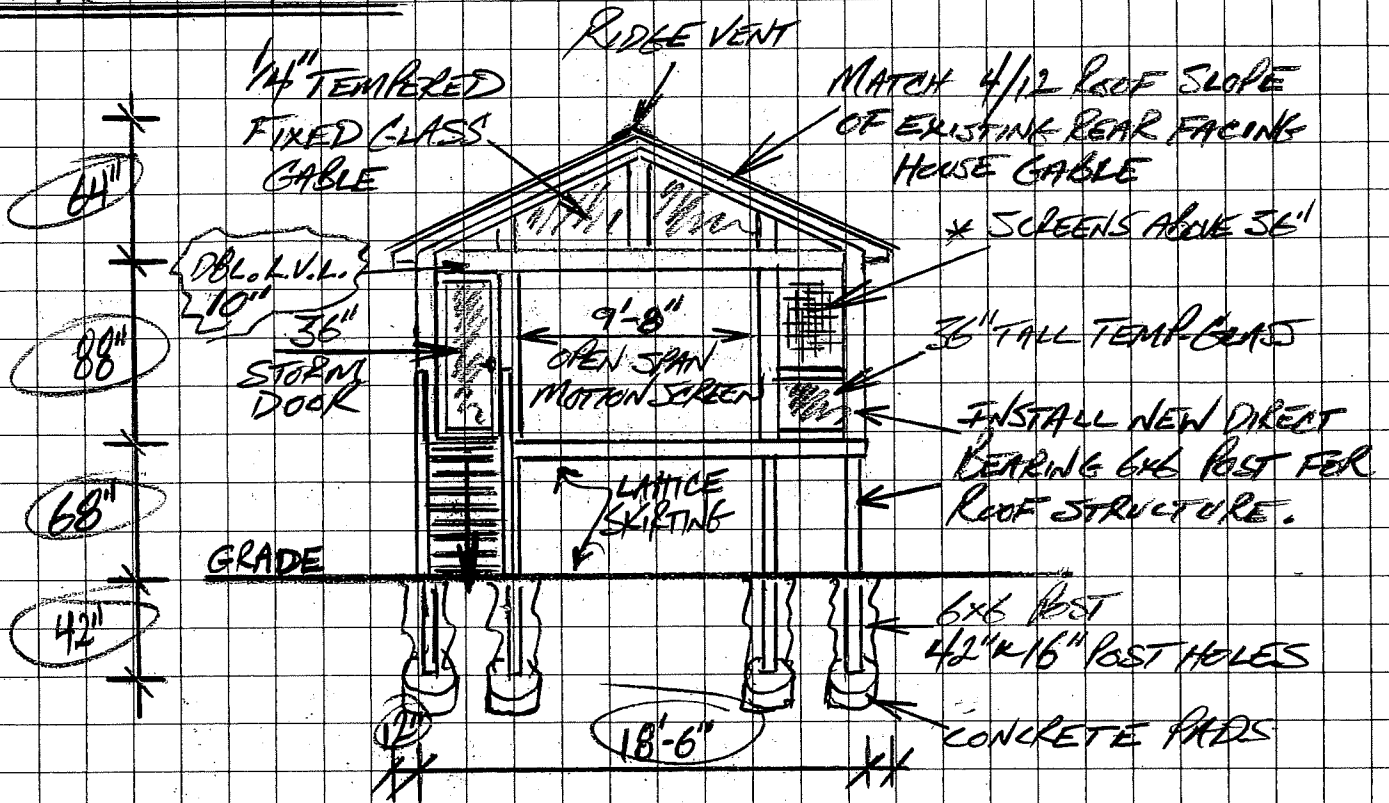 RIDGE VENT
1/4" TEMPERED
FIXED GLASS
GABLE
MATCH 4/12 ROOF SLOPE
OF EXISTING REAR FACING
HOUSE GABLE
64"
* SCREENS ABOVE 36"
DBL. L.V.L.
10"
88"
36"
STORM
DOOR
9'-8"
OPEN SPAN
MOTION SCREEN
36" TALL TEMP. GLASS
INSTALL NEW DIRECT
BEARING 6x6 POST FOR
ROOF STRUCTURE.
68"
LATTICE
SKIRTING
GRADE
42"
6x6 POST
42" x 16" POST HOLES
12"
18'-6"
CONCRETE PADS